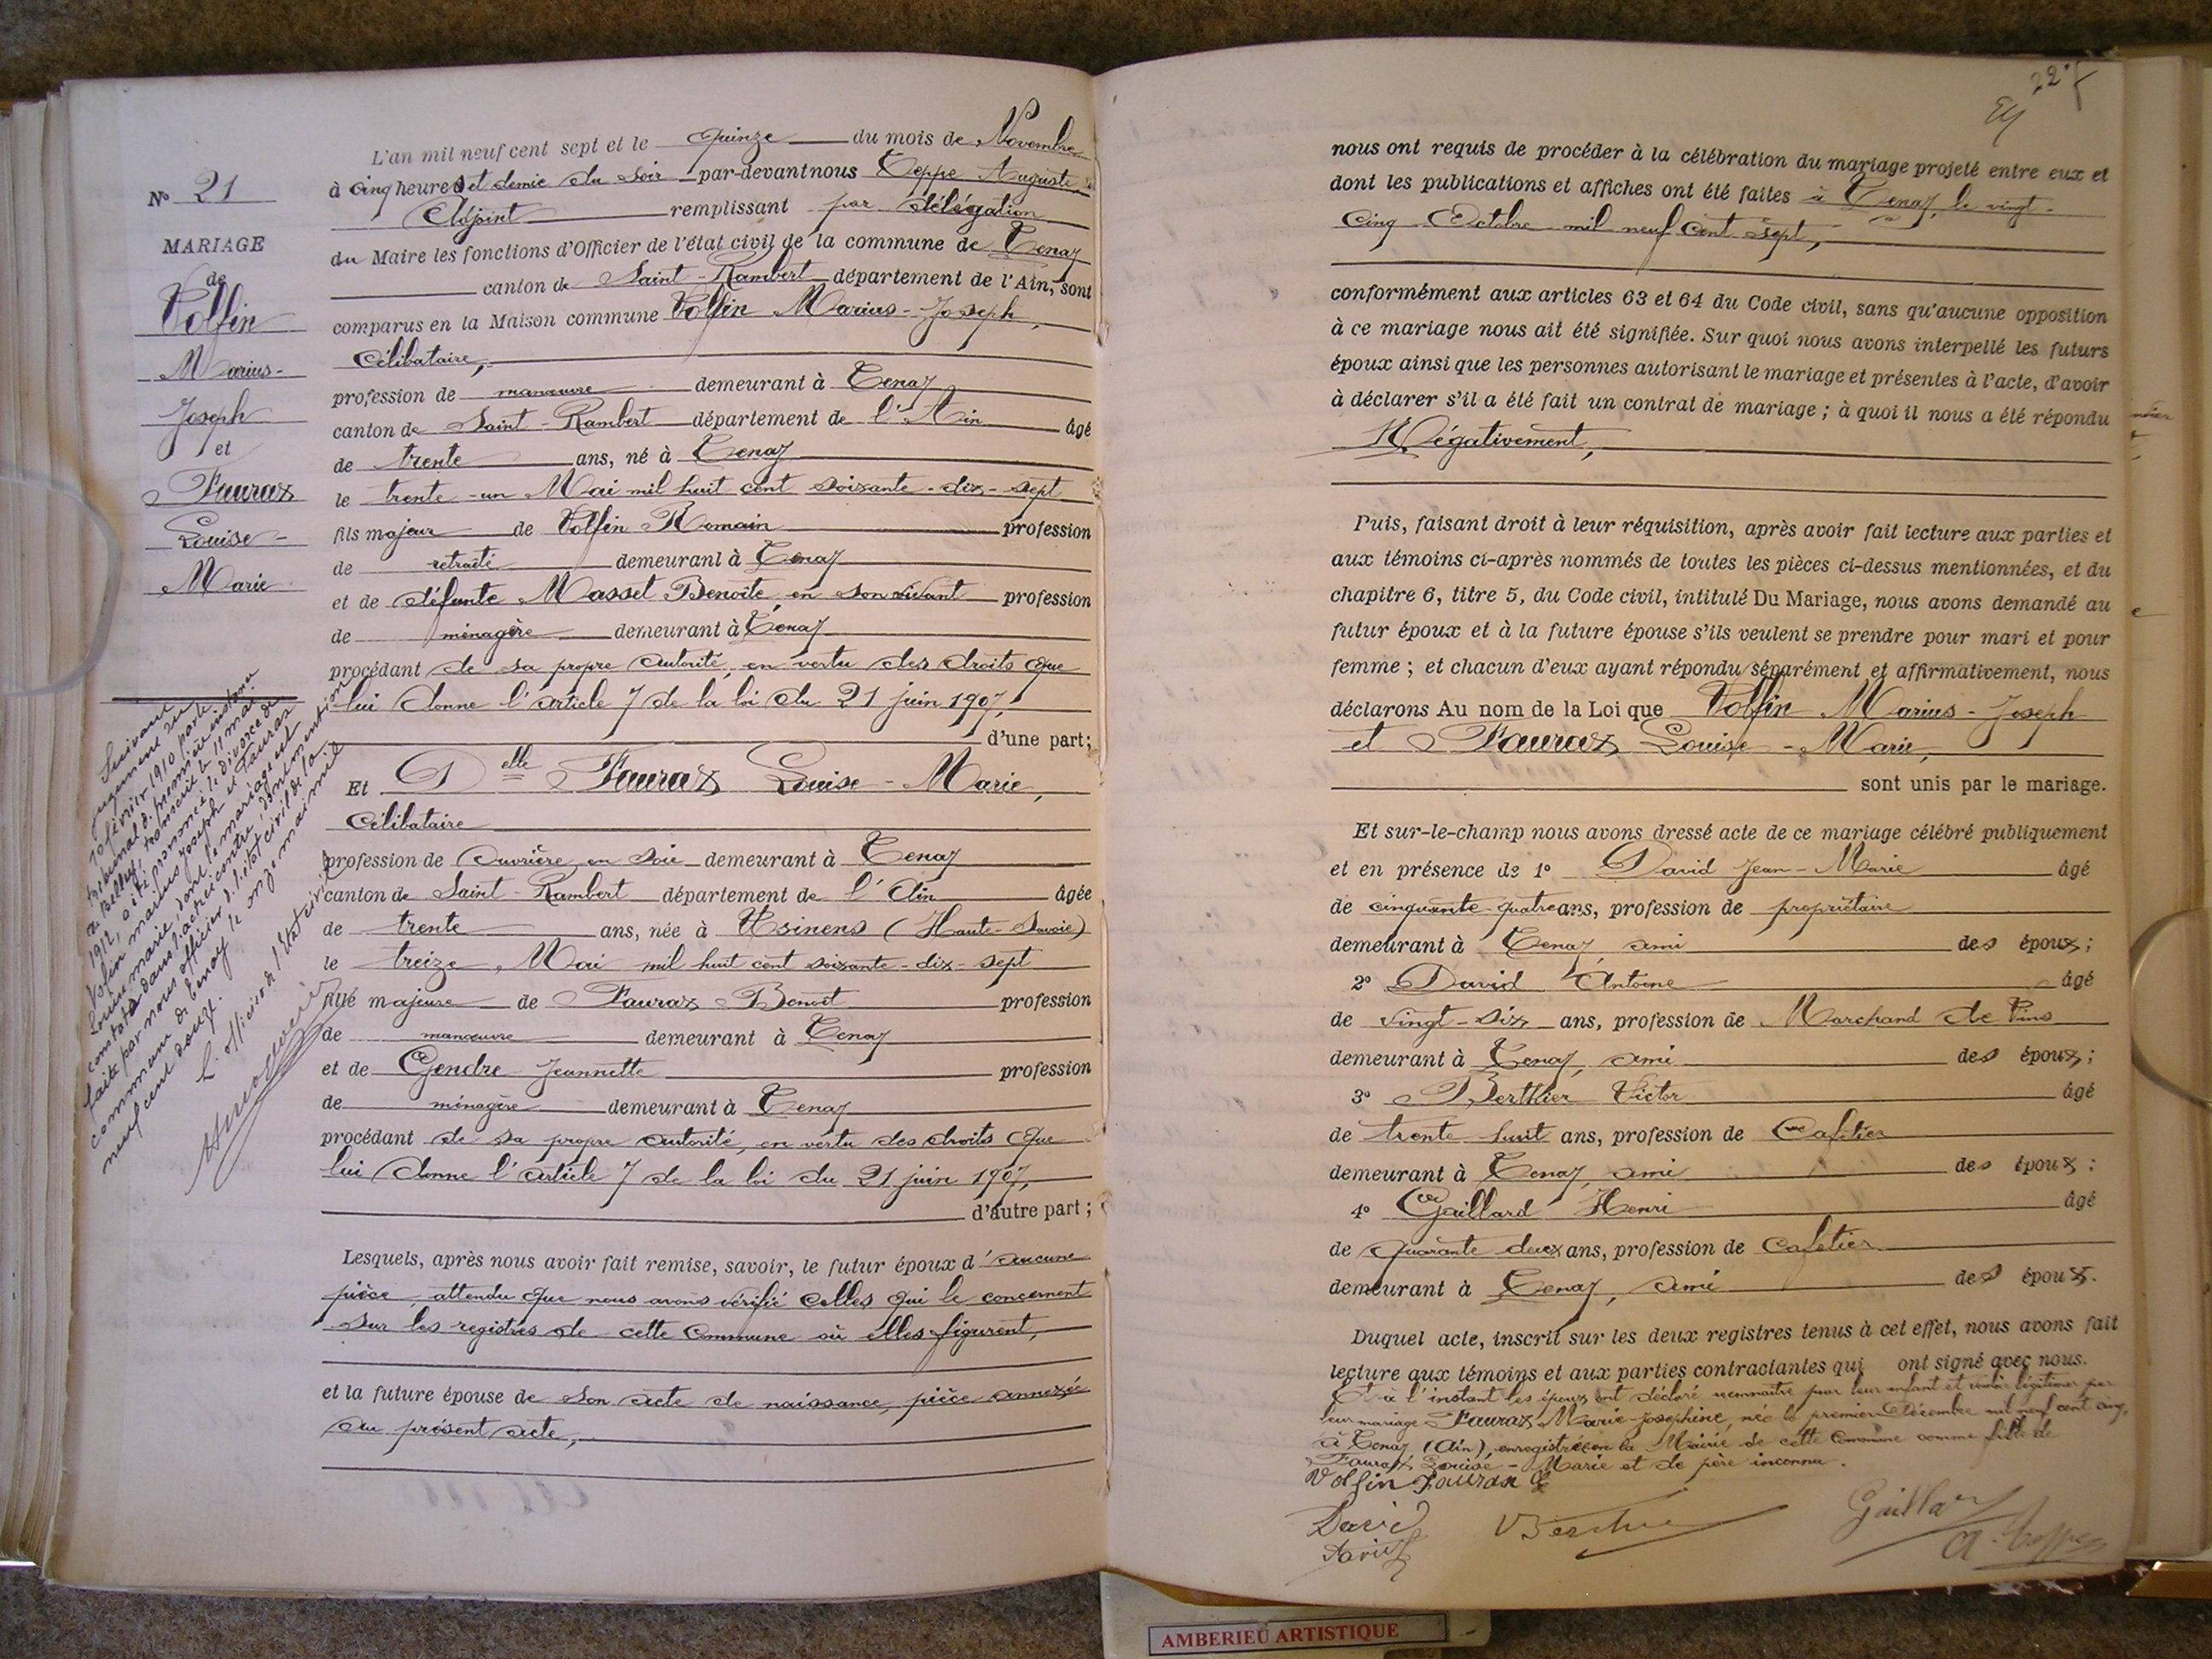 N° 21
MARIAGE
de
Volfin
Marius-
Joseph
et
Fauraz
Louise-
Marie
L'an mil neuf cent sept et le quinze du mois de Novembre
à cinq heures et demie du soir par-devant nous Teppe Auguste
Adjoint remplissant par délégation
du Maire les fonctions d'Officier de l'état civil de la commune de Tenay
canton de Saint-Rambert département de l'Ain, sont
comparus en la Maison commune Volfin Marius-Joseph,
Célibataire,
profession de manœuvre demeurant à Tenay
canton de Saint-Rambert département de l'Ain âgé
de trente ans, né à Tenay
le trente-un Mai mil huit cent soixante-dix-sept
fils majeur de Volfin Romain profession
de retraité demeurant à Tenay
et de défunte Masset Benoîte, en son vivant profession
de ménagère demeurant à Tenay
procédant de sa propre autorité, en vertu des droits que
lui donne l'article 7 de la loi du 21 juin 1907,
d'une part;
Et Delle Fauraz Louise-Marie,
Célibataire
profession de Ouvrière en soie demeurant à Tenay
canton de Saint-Rambert département de l'Ain âgée
de trente ans, née à Usinens (Haute-Savoie)
le treize Mai mil huit cent soixante-dix-sept
fille majeure de Fauraz Benoît profession
de manœuvre demeurant à Tenay
et de Gendre Jeannette profession
de ménagère demeurant à Tenay
procédant de sa propre autorité, en vertu des droits que
lui donne l'article 7 de la loi du 21 juin 1907,
d'autre part;
Lesquels, après nous avoir fait remise, savoir, le futur époux d'aucune
pièce, attendu que nous avons vérifié celles qui le concernent
sur les registres de cette Commune où elles figurent,
et la future épouse de son acte de naissance, pièce annexée
au présent acte,
Suivant
jugement du
10 février 1910 porté
tribunal de première instance
de Belley, transcrit le 11 mai
1912, a été prononcé le divorce de
Volfin Marius Joseph et Fauraz
Louise Marie, dont le mariage est
constaté dans l'acte ci contre, dont mention
faite par nous officier de l'état civil de la
commune de Tenay le onze mai mil
neuf cent douze.
L'officier de l'état civil
225
nous ont requis de procéder à la célébration du mariage projeté entre eux et
dont les publications et affiches ont été faites à Tenay, le vingt-
cinq Octobre mil neuf cent sept,
conformément aux articles 63 et 64 du Code civil, sans qu'aucune opposition
à ce mariage nous ait été signifiée. Sur quoi nous avons interpellé les futurs
époux ainsi que les personnes autorisant le mariage et présentes à l'acte, d'avoir
à déclarer s'il a été fait un contrat de mariage ; à quoi il nous a été répondu
Négativement,
Puis, faisant droit à leur réquisition, après avoir fait lecture aux parties et
aux témoins ci-après nommés de toutes les pièces ci-dessus mentionnées, et du
chapitre 6, titre 5, du Code civil, intitulé Du Mariage, nous avons demandé au
futur époux et à la future épouse s'ils veulent se prendre pour mari et pour
femme ; et chacun d'eux ayant répondu séparément et affirmativement, nous
déclarons Au nom de la Loi que Volfin Marius-Joseph
et Fauraz Louise-Marie,
sont unis par le mariage.
Et sur-le-champ nous avons dressé acte de ce mariage célébré publiquement
et en présence de 1° David Jean-Marie âgé
de cinquante-quatre ans, profession de propriétaire
demeurant à Tenay, ami des époux;
2° David Antoine âgé
de vingt-six ans, profession de Marchand de Vins
demeurant à Tenay, ami des époux;
3° Berthier Victor âgé
de trente huit ans, profession de Cafetier
demeurant à Tenay, ami des époux;
4° Gaillard Henri âgé
de quarante deux ans, profession de Cafetier
demeurant à Tenay, ami des époux.
Duquel acte, inscrit sur les deux registres tenus à cet effet, nous avons fait
lecture aux témoins et aux parties contractantes qui ont signé avec nous.
Et à l'instant les époux ont déclaré reconnaître pour leur enfant et vouloir légitimer par
leur mariage Fauraz Marie-Joséphine, née le premier Décembre mil neuf cent cinq,
à Tenay (Ain), enregistrée en la Mairie de cette Commune comme fille de
Fauraz Louise-Marie et de père inconnu.
Volfin Fauraz
David
David
Gaillard
A. Teppe
AMBERIEU ARTISTIQUE